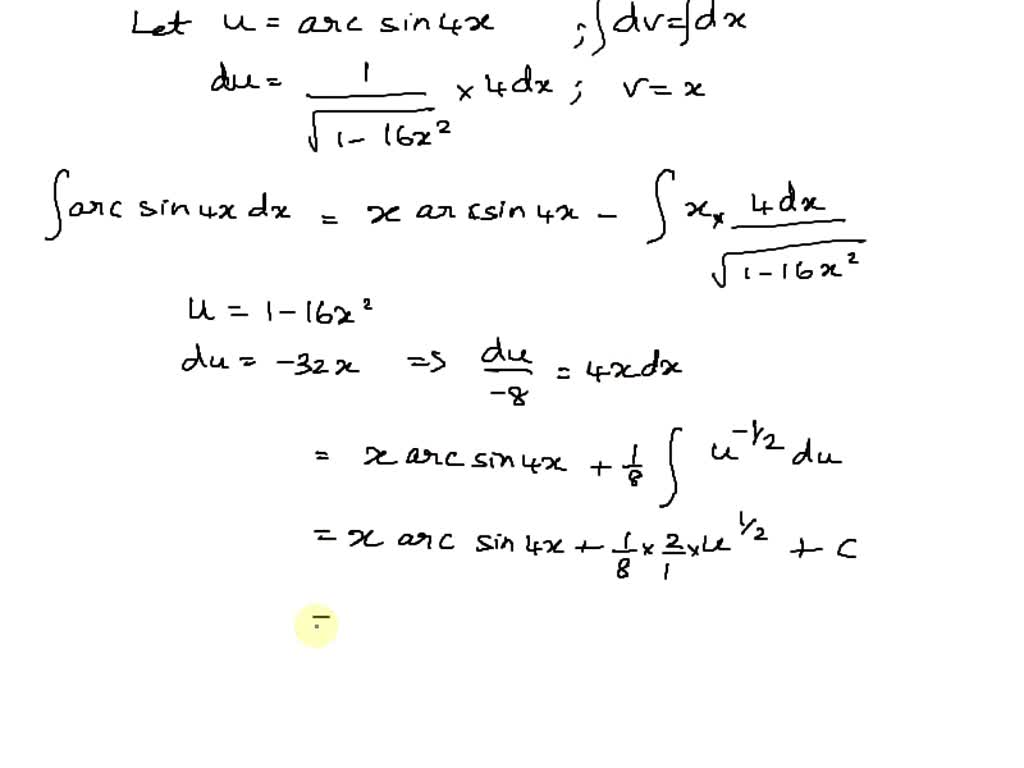 Let u = arc sin 4x ; ∫dv = ∫dx
du = 1/√(1 - 16x²) × 4dx ; v = x
∫arc sin 4x dx = x arc sin 4x - ∫ x × 4dx/√(1 - 16x²)
u = 1 - 16x²
du = -32x => du/-8 = 4x dx
= x arc sin 4x + 1/8 ∫ u^-1/2 du
= x arc sin 4x + 1/8 × 2/1 × u^1/2 + C
=